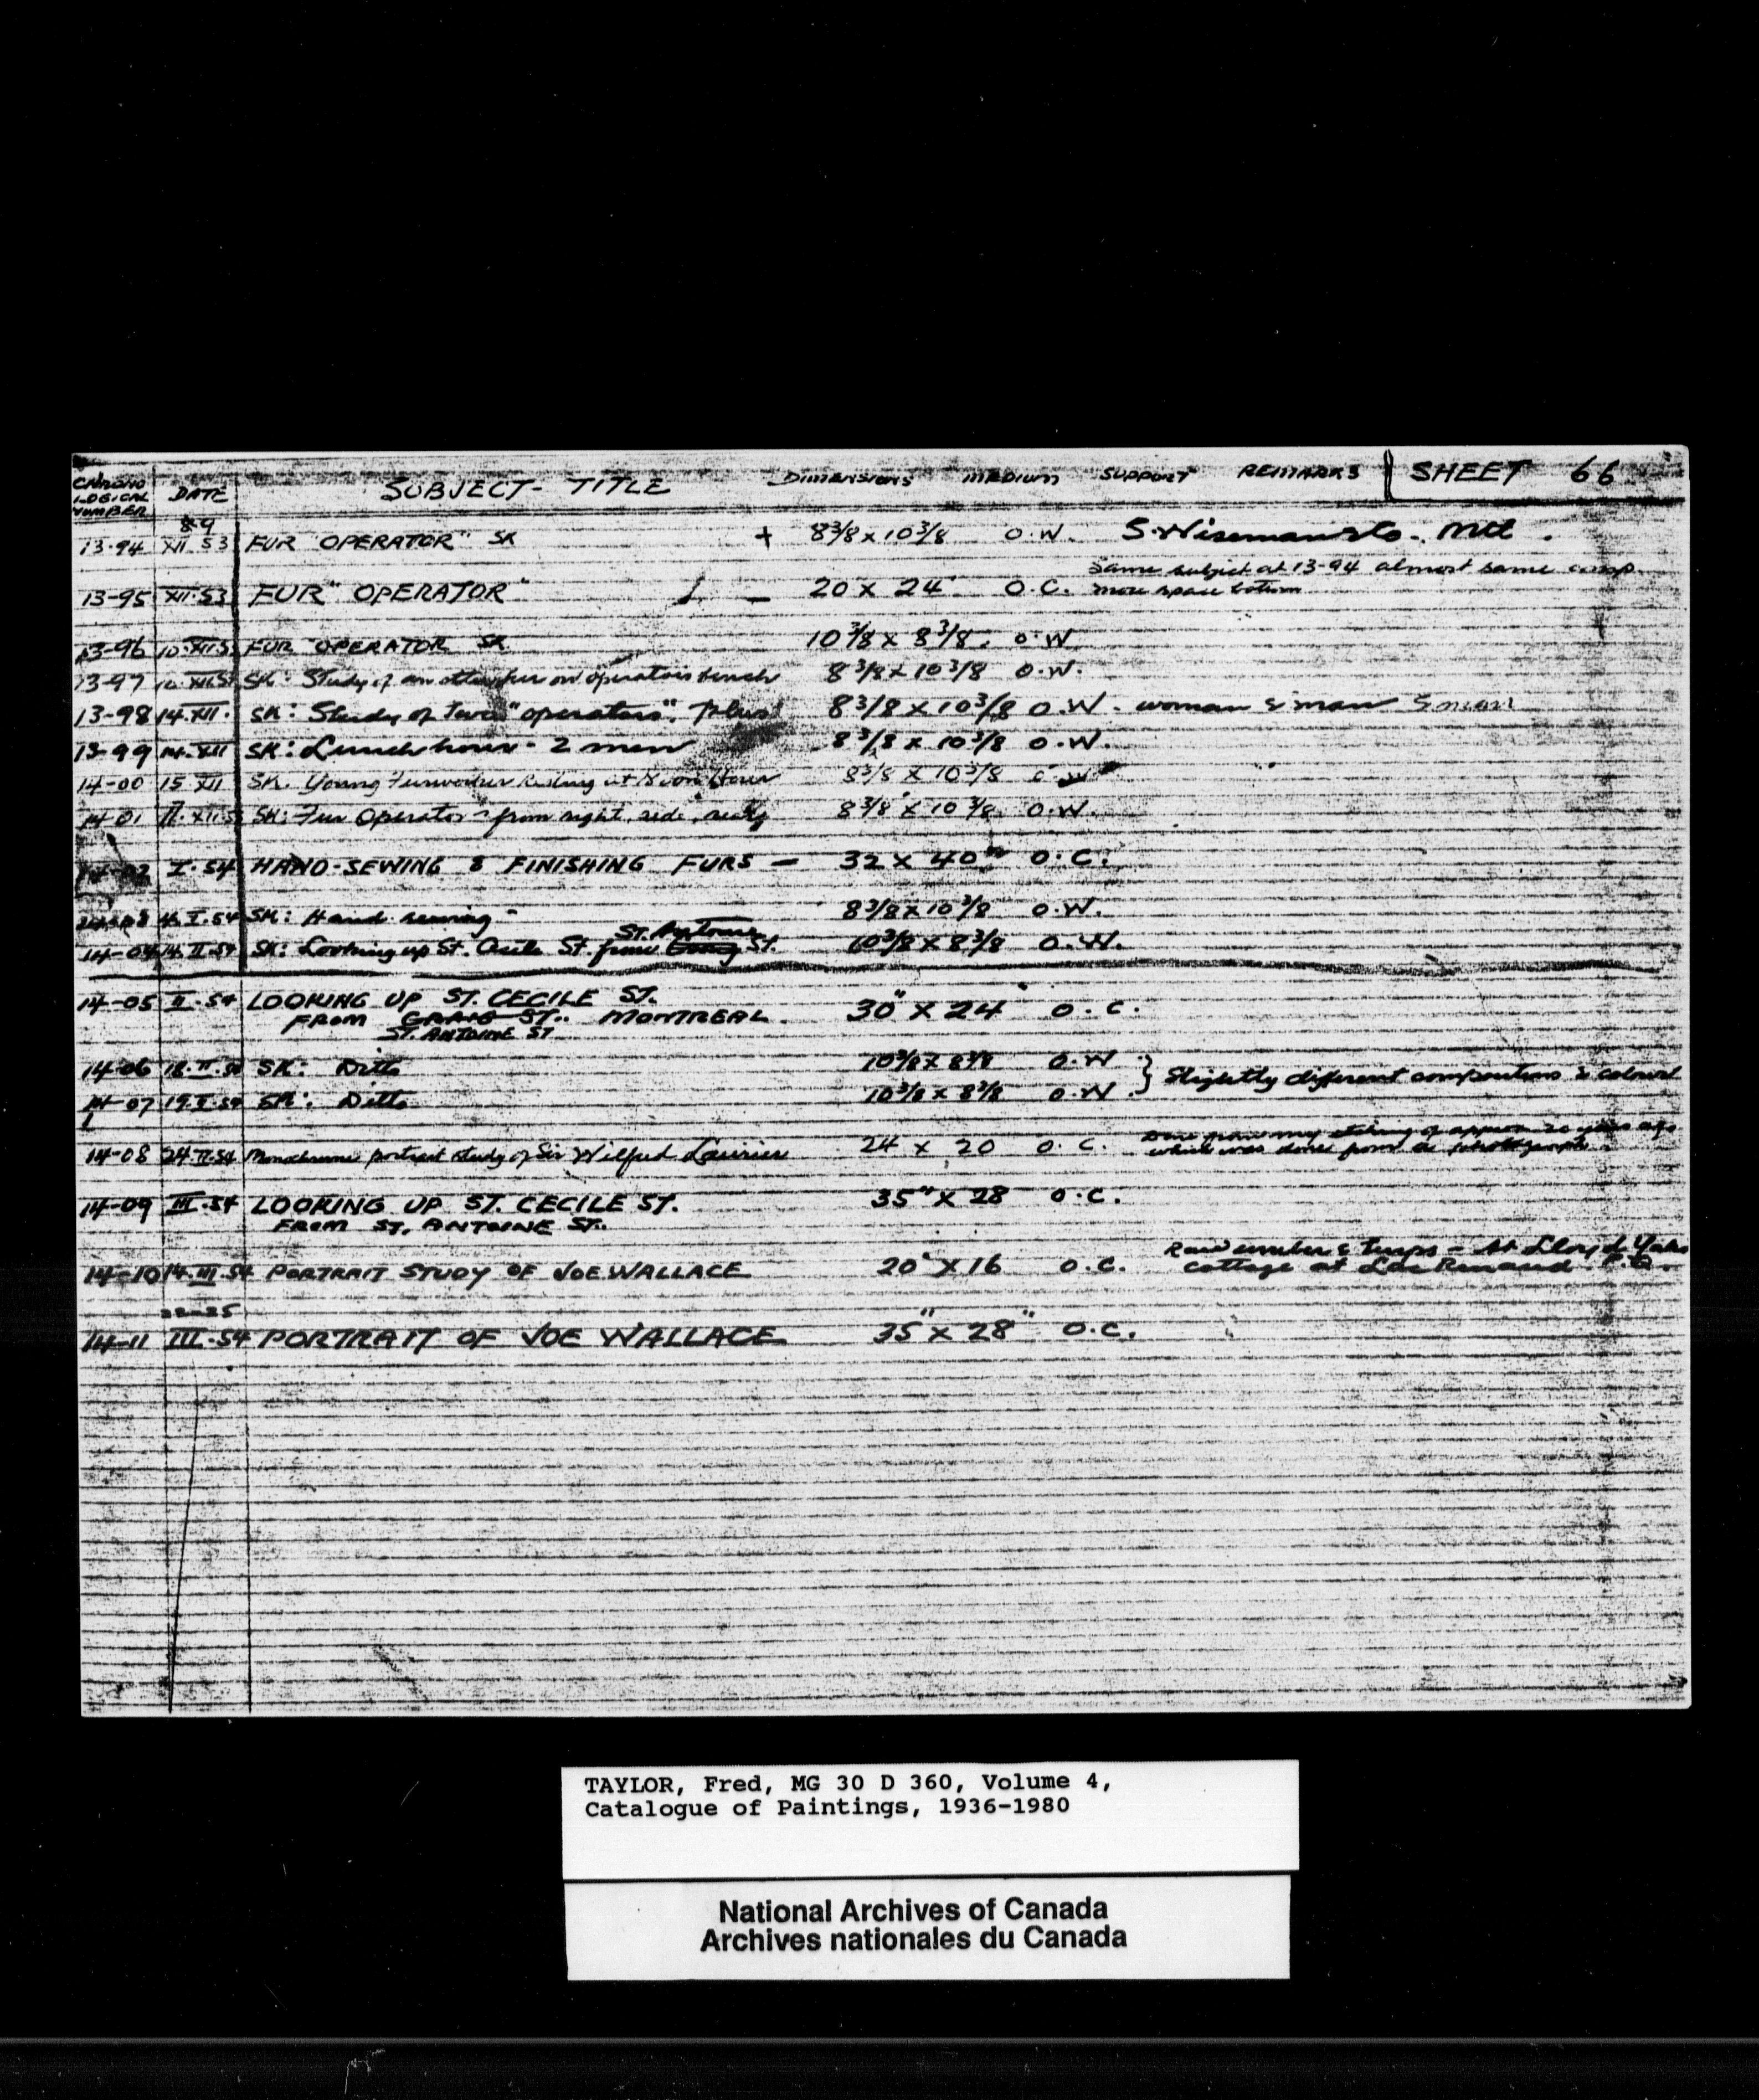 CHRONO LOGICAL NUMBER DATE SUBJECT - TITLE DIMENSIONS MEDIUM SUPPORT REMARKS SHEET 66
13-94 8-9 XII 53 FUR "OPERATOR" SK + 8 3/8 x 10 3/8 O.W. S. Wiseman & Co. Mtl.
Same subject at 13-94 almost same comp.
13-95 XII-53 FUR "OPERATOR" 20 x 24 O.C. more space bottom
13-96 10-XII-53 FUR "OPERATOR SK 10 3/8 x 8 3/8. O.W.
13-97 10-XII-53 SK: Study of another fur on operators bench 8 3/8 x 10 3/8 O.W.
13-98 14.XII. SK: Study of two "operators". Plus 8 3/8 x 10 3/8 O.W. - woman & man
13-99 14.XII SK: Lunch hour - 2 men 8 3/8 x 10 3/8 O.W.
14-00 15 XII SK. Young Furworker Resting at Noon Hour 8 3/8 x 10 3/8 O.W
14-01 XII-53 SK: Fur Operator - from right, side, 8 3/8 x 10 3/8. O.W.
14-02 I-54 HAND-SEWING & FINISHING FURS - 32 x 40" O.C.
14-03 I.54 SK: Hand sewing - 8 3/8 x 10 3/8 O.W.
St. Antoine
14-04 14.II.54 SK: Looking up St. Cecile St. from Craig St. 10 3/8 x 8 3/8 O.W.
14-05 II-54 LOOKING UP ST. CECILE ST. 30" x 24 O.C.
FROM CRAIG ST.. MONTREAL
ST. ANTOINE ST
14-06 18.II.54 SK: Ditto 10 3/8 x 8 3/8 O.W } Slightly different compositions & colour
14-07 19.II.54 SK: Ditto 10 3/8 x 8 3/8 O.W.
14-08 24.II.54 Monochrome portrait study of Sir Wilfred Laurier 24 x 20 O.C. Done from my etching of approx. 20 years ago
which was done from a photograph.
14-09 III-54 LOOKING UP ST. CECILE ST. 35" x 28 O.C.
FROM ST. ANTOINE ST.
14-10 14.III.54 PORTRAIT STUDY OF JOE WALLACE 20" x 16 O.C. Raw umber & Turps - At Lloyd
cottage at Lac Renaud. P.Q.
22-25
14-11 III-54 PORTRAIT OF JOE WALLACE 35" x 28" O.C.
TAYLOR, Fred, MG 30 D 360, Volume 4,
Catalogue of Paintings, 1936-1980
National Archives of Canada
Archives nationales du Canada